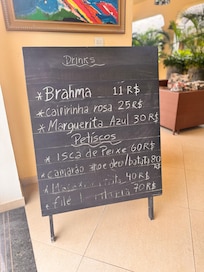 Drinks
*Brahma 11 R$
*Caipirinha rosa 25 R$
*Marguerita Azul 30 R$
Petiscos
*Isca de Peixe 60 R$
*camarão
40 R$
*file 70 R$